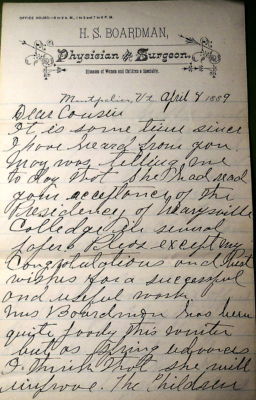 OFFICE HOURS:
H. S. BOARDMAN,
Physician and Surgeon.
Diseases of Women and Children a Specialty.
Montpelier, Vt. April 8 1889
Dear Cousin
It is some time since
I have heard from you.
May was telling me
to day that she had read
your acceptancy of the
Presidency of Marysville
Colledge in several
papers Please except my
Congratulations and best
wishes for a successful
and useful work.
Mrs Boardman has been
quite poorly this winter
but as Spring advances
I think that she will
improve. The Children